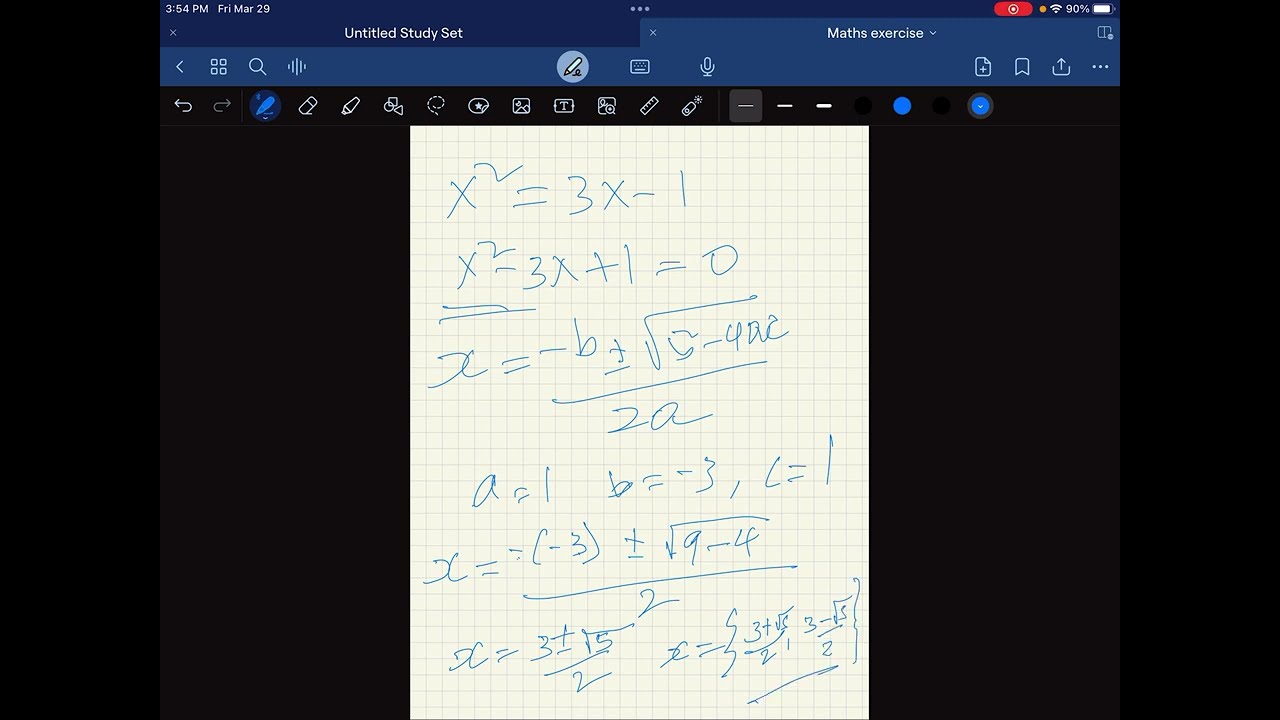 3:54 PM Fri Mar 29
90%
Untitled Study Set
Maths exercise
x² = 3x - 1
x² - 3x + 1 = 0
x = (-b ± √(b² - 4ac)) / 2a
a = 1 b = -3, c = 1
x = (-(-3) ± √(9 - 4)) / 2
x = (3 ± √5) / 2 x = {(3 + √5) / 2, (3 - √5) / 2}